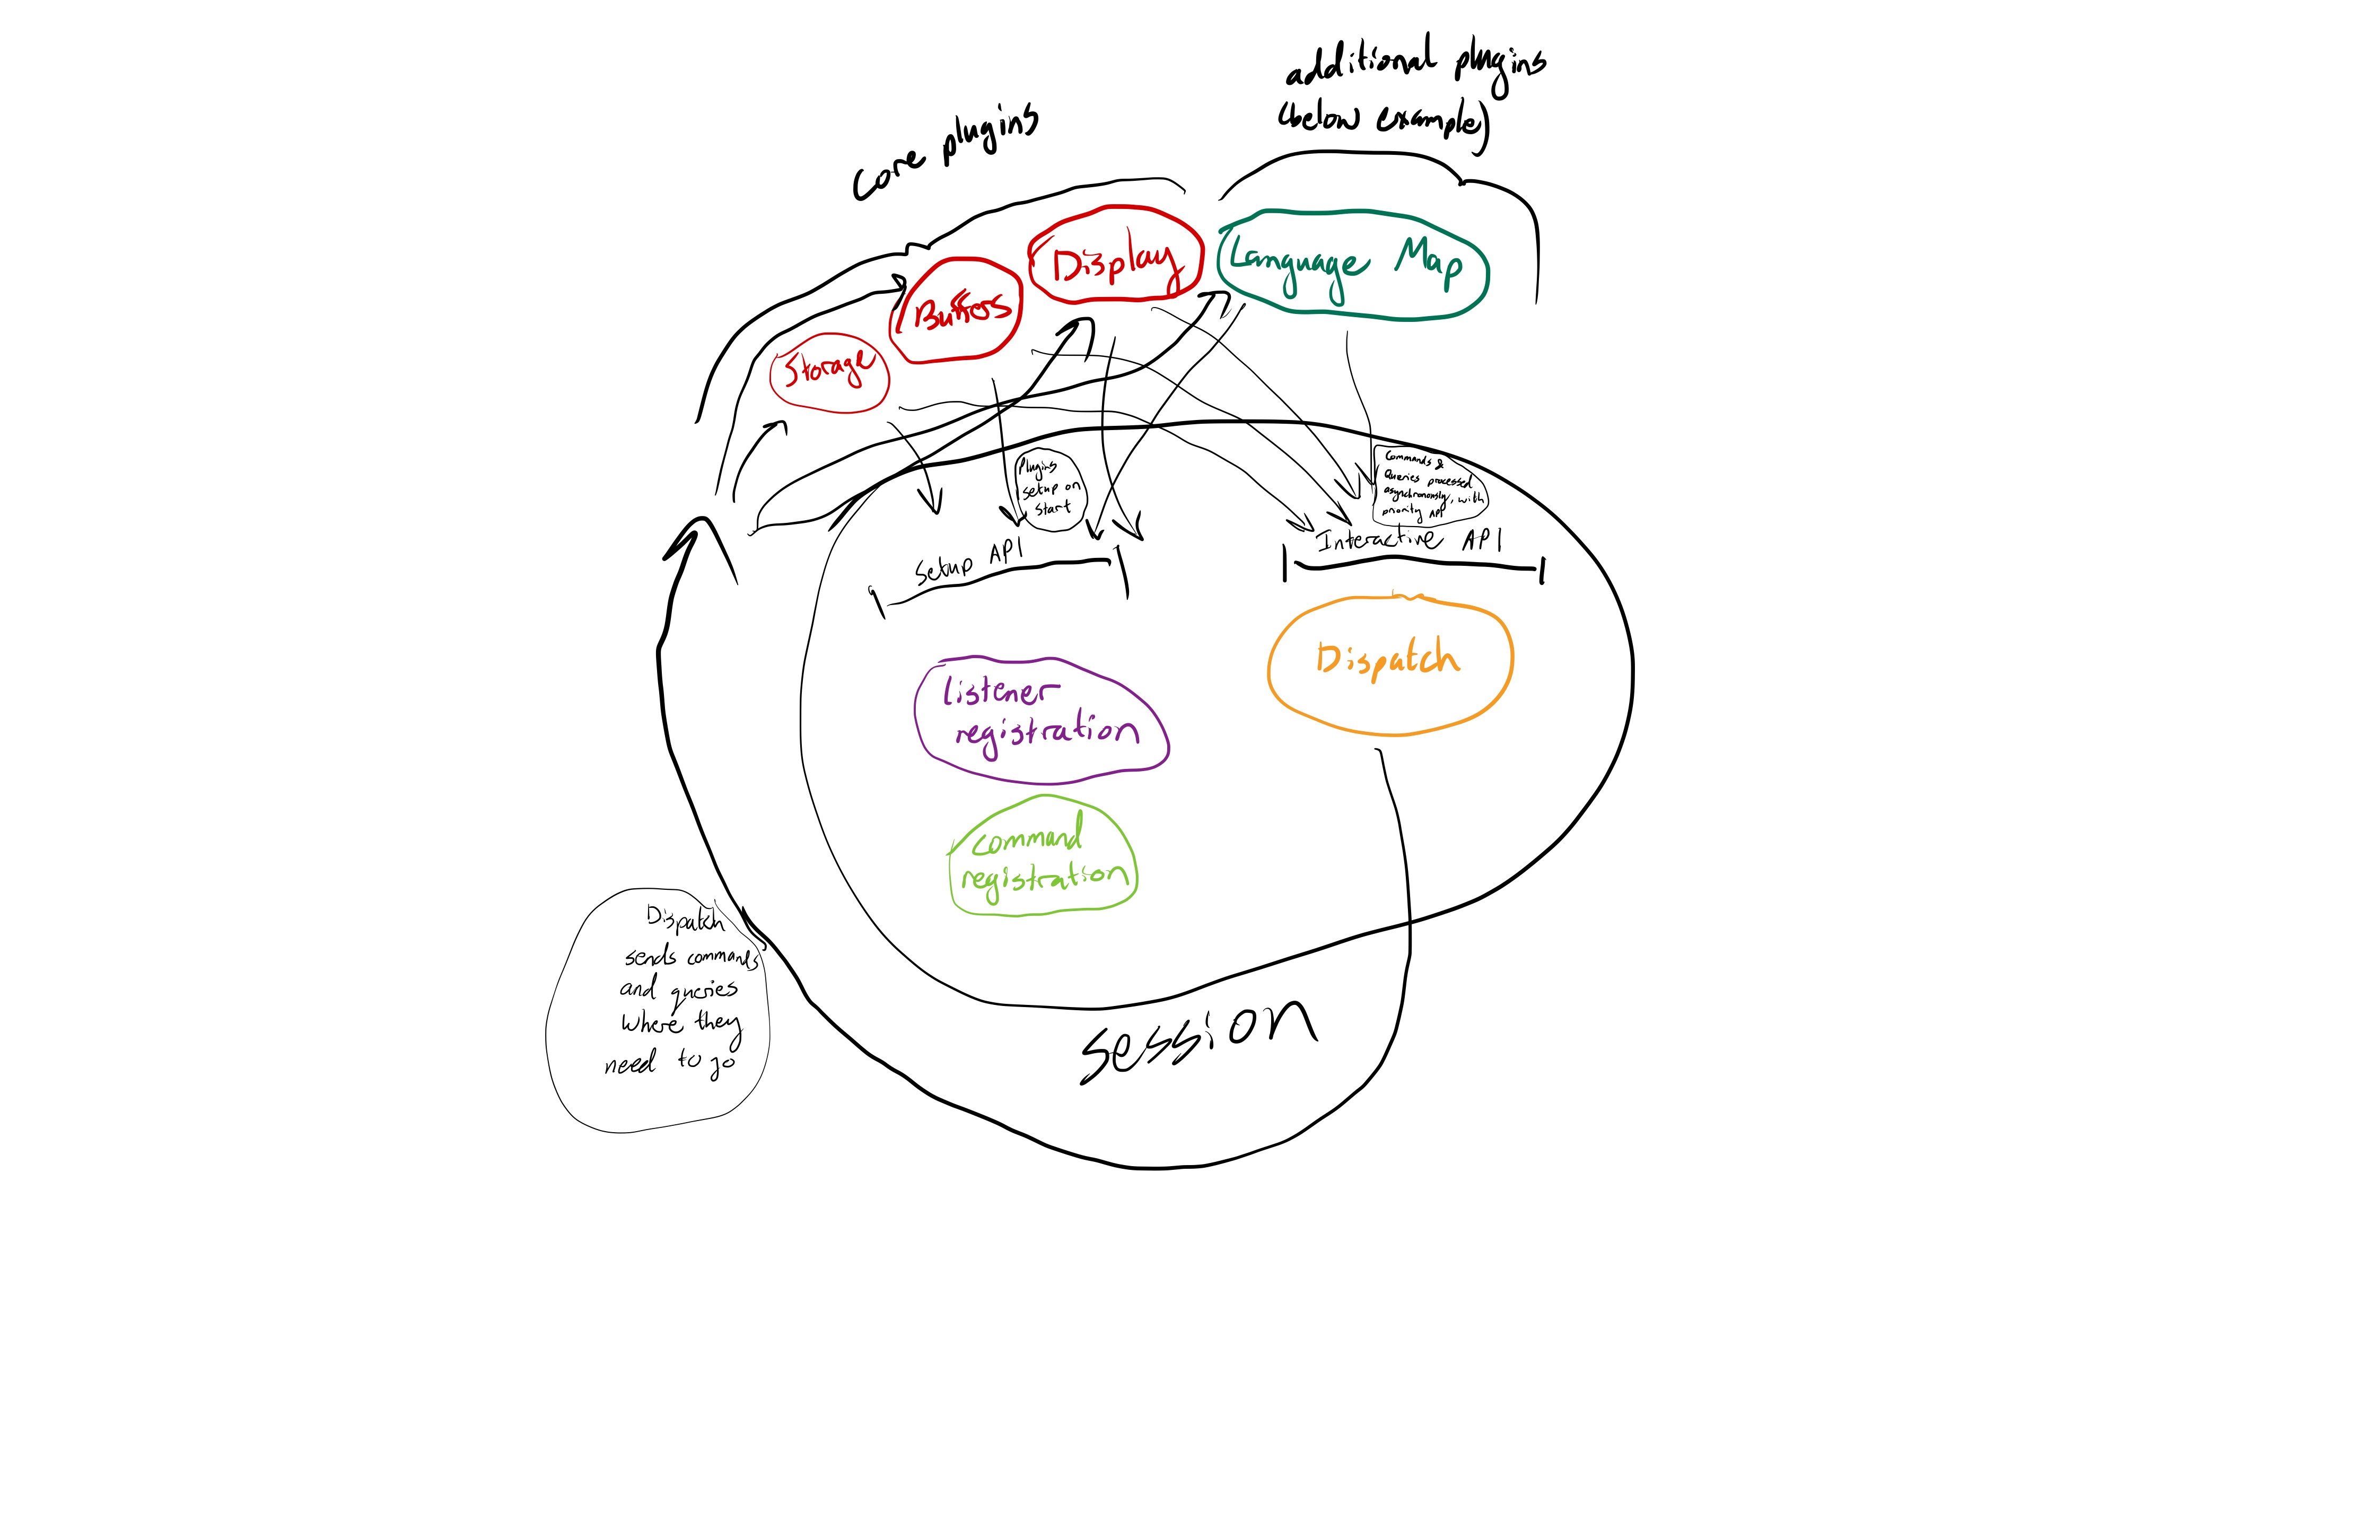 additional plugins
(below example)
Core plugins
Storage
Buffers
Display
Language Map
Plugins
setup on
start
Commands &
Queries processed
asynchronously, with
priority API
Setup API
Interactive API
Listener
registration
Command
registration
Dispatch
Dispatch
sends commands
and queries
where they
need to go
Session